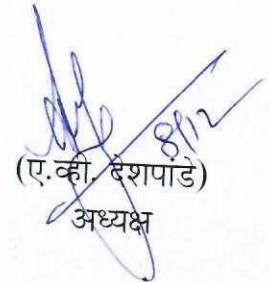 8/12
(ए.व्ही. देशपांडे)
अध्यक्ष